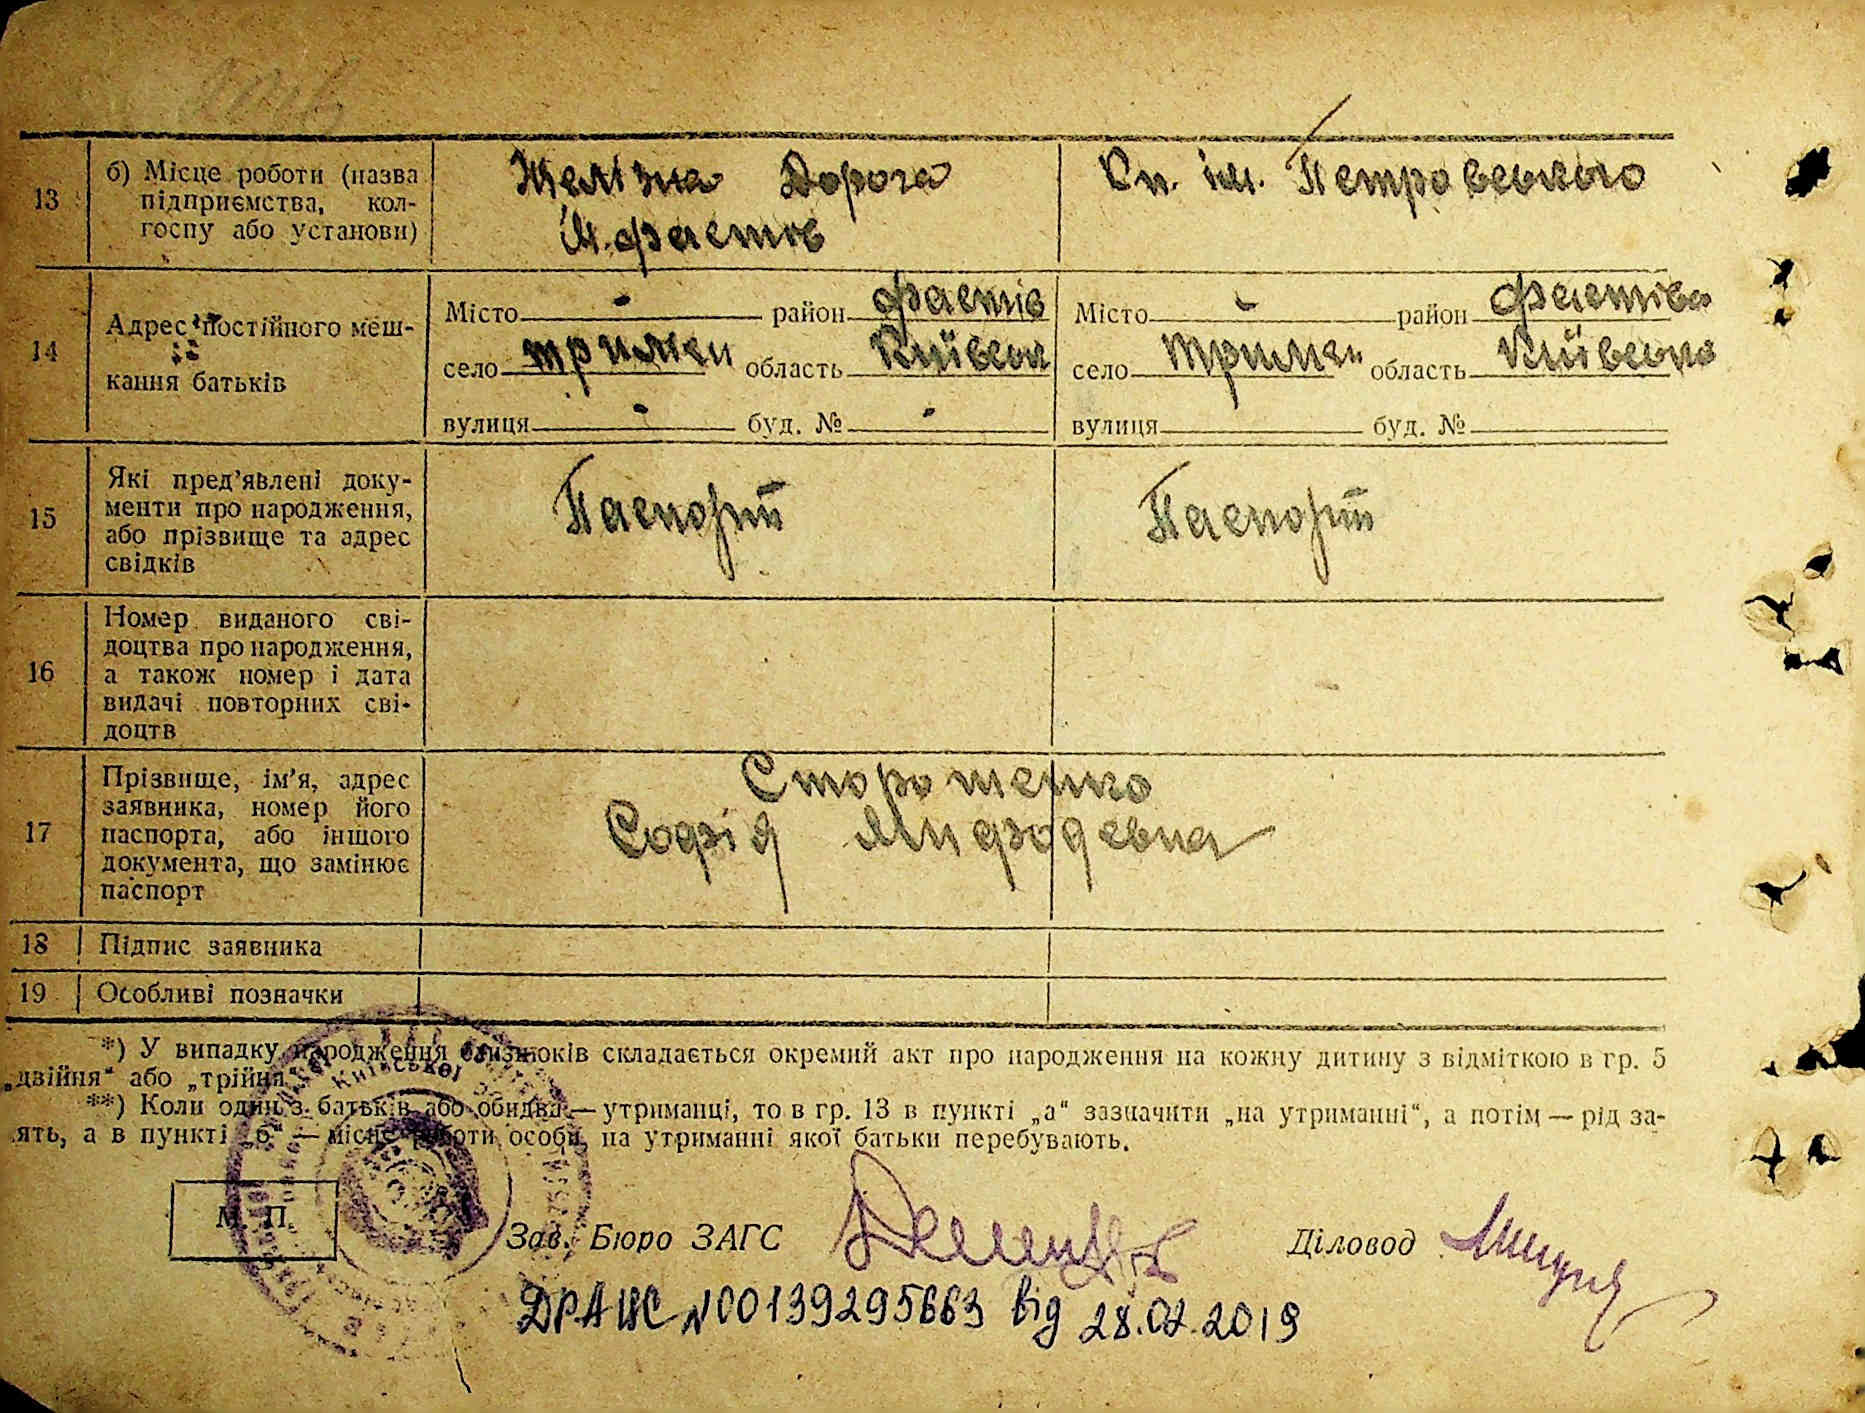 13
б) Місце роботи (назва
підприємства, кол-
госпу або установи)
Желізна Дорога
М. Фастов
Сп. ім. Петровського
14
Адрес постійного меш-
кання батьків
Місто район Фастів
село Трилєси область Київськ
вулиця буд. №
Місто район Фастівс
село Трилєси область Київсько
вулиця буд. №
15
Які пред’явлені доку-
менти про народження,
або прізвище та адрес
свідків
Паспорт
Паспорт
16
Номер виданого сві-
доцтва про народження,
а також номер і дата
видачі повторних сві-
доцтв
17
Прізвище, ім’я, адрес
заявника, номер його
паспорта, або іншого
документа, що замінює
паспорт
Стороженко
Софія Мифодевна
18
Підпис заявника
19
Особливі позначки
*) У випадку народження близнюків складається окремий акт про народження на кожну дитину з відміткою в гр. 5
„двійня“ або „трійня“.
**) Коли один з батьків або обидва — утриманці, то в гр. 13 в пункті „а“ зазначити „на утриманні“, а потім — рід за-
ять, а в пункті „б“ — місце роботи особи, на утриманні якої батьки перебувають.
Київської
М. П.
Зав. Бюро ЗАГС
Діловод
ДРАЦС №00139295663 від 28.02.2019